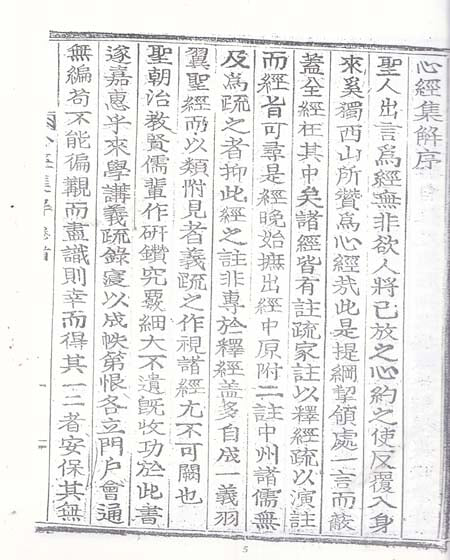 心經集解序
聖人出言爲經無非欲人將已放之心約之使反覆入身
來奚獨西山所贊爲心經㢤此是提綱挈領處一言而蔽
蓋全經在其中矣諸經皆有註疏家註以釋經疏以演註
而經旨可尋是經晚始摭出經中原附二註中州諸儒無
及爲疏之者抑此經之註非專於釋經蓋多自成一義羽
翼聖經而以類附見者義疏之作視諸經尤不可闕也
聖朝治教賢儒輩作硏鑽究覈細大不遺旣收功於此書
遂嘉惠乎來學講義疏錄寔以成帙第恨各立門户會通
無編苟不能徧觀而盡識則幸而得其一二者安保其無
心經集解 卷首
5